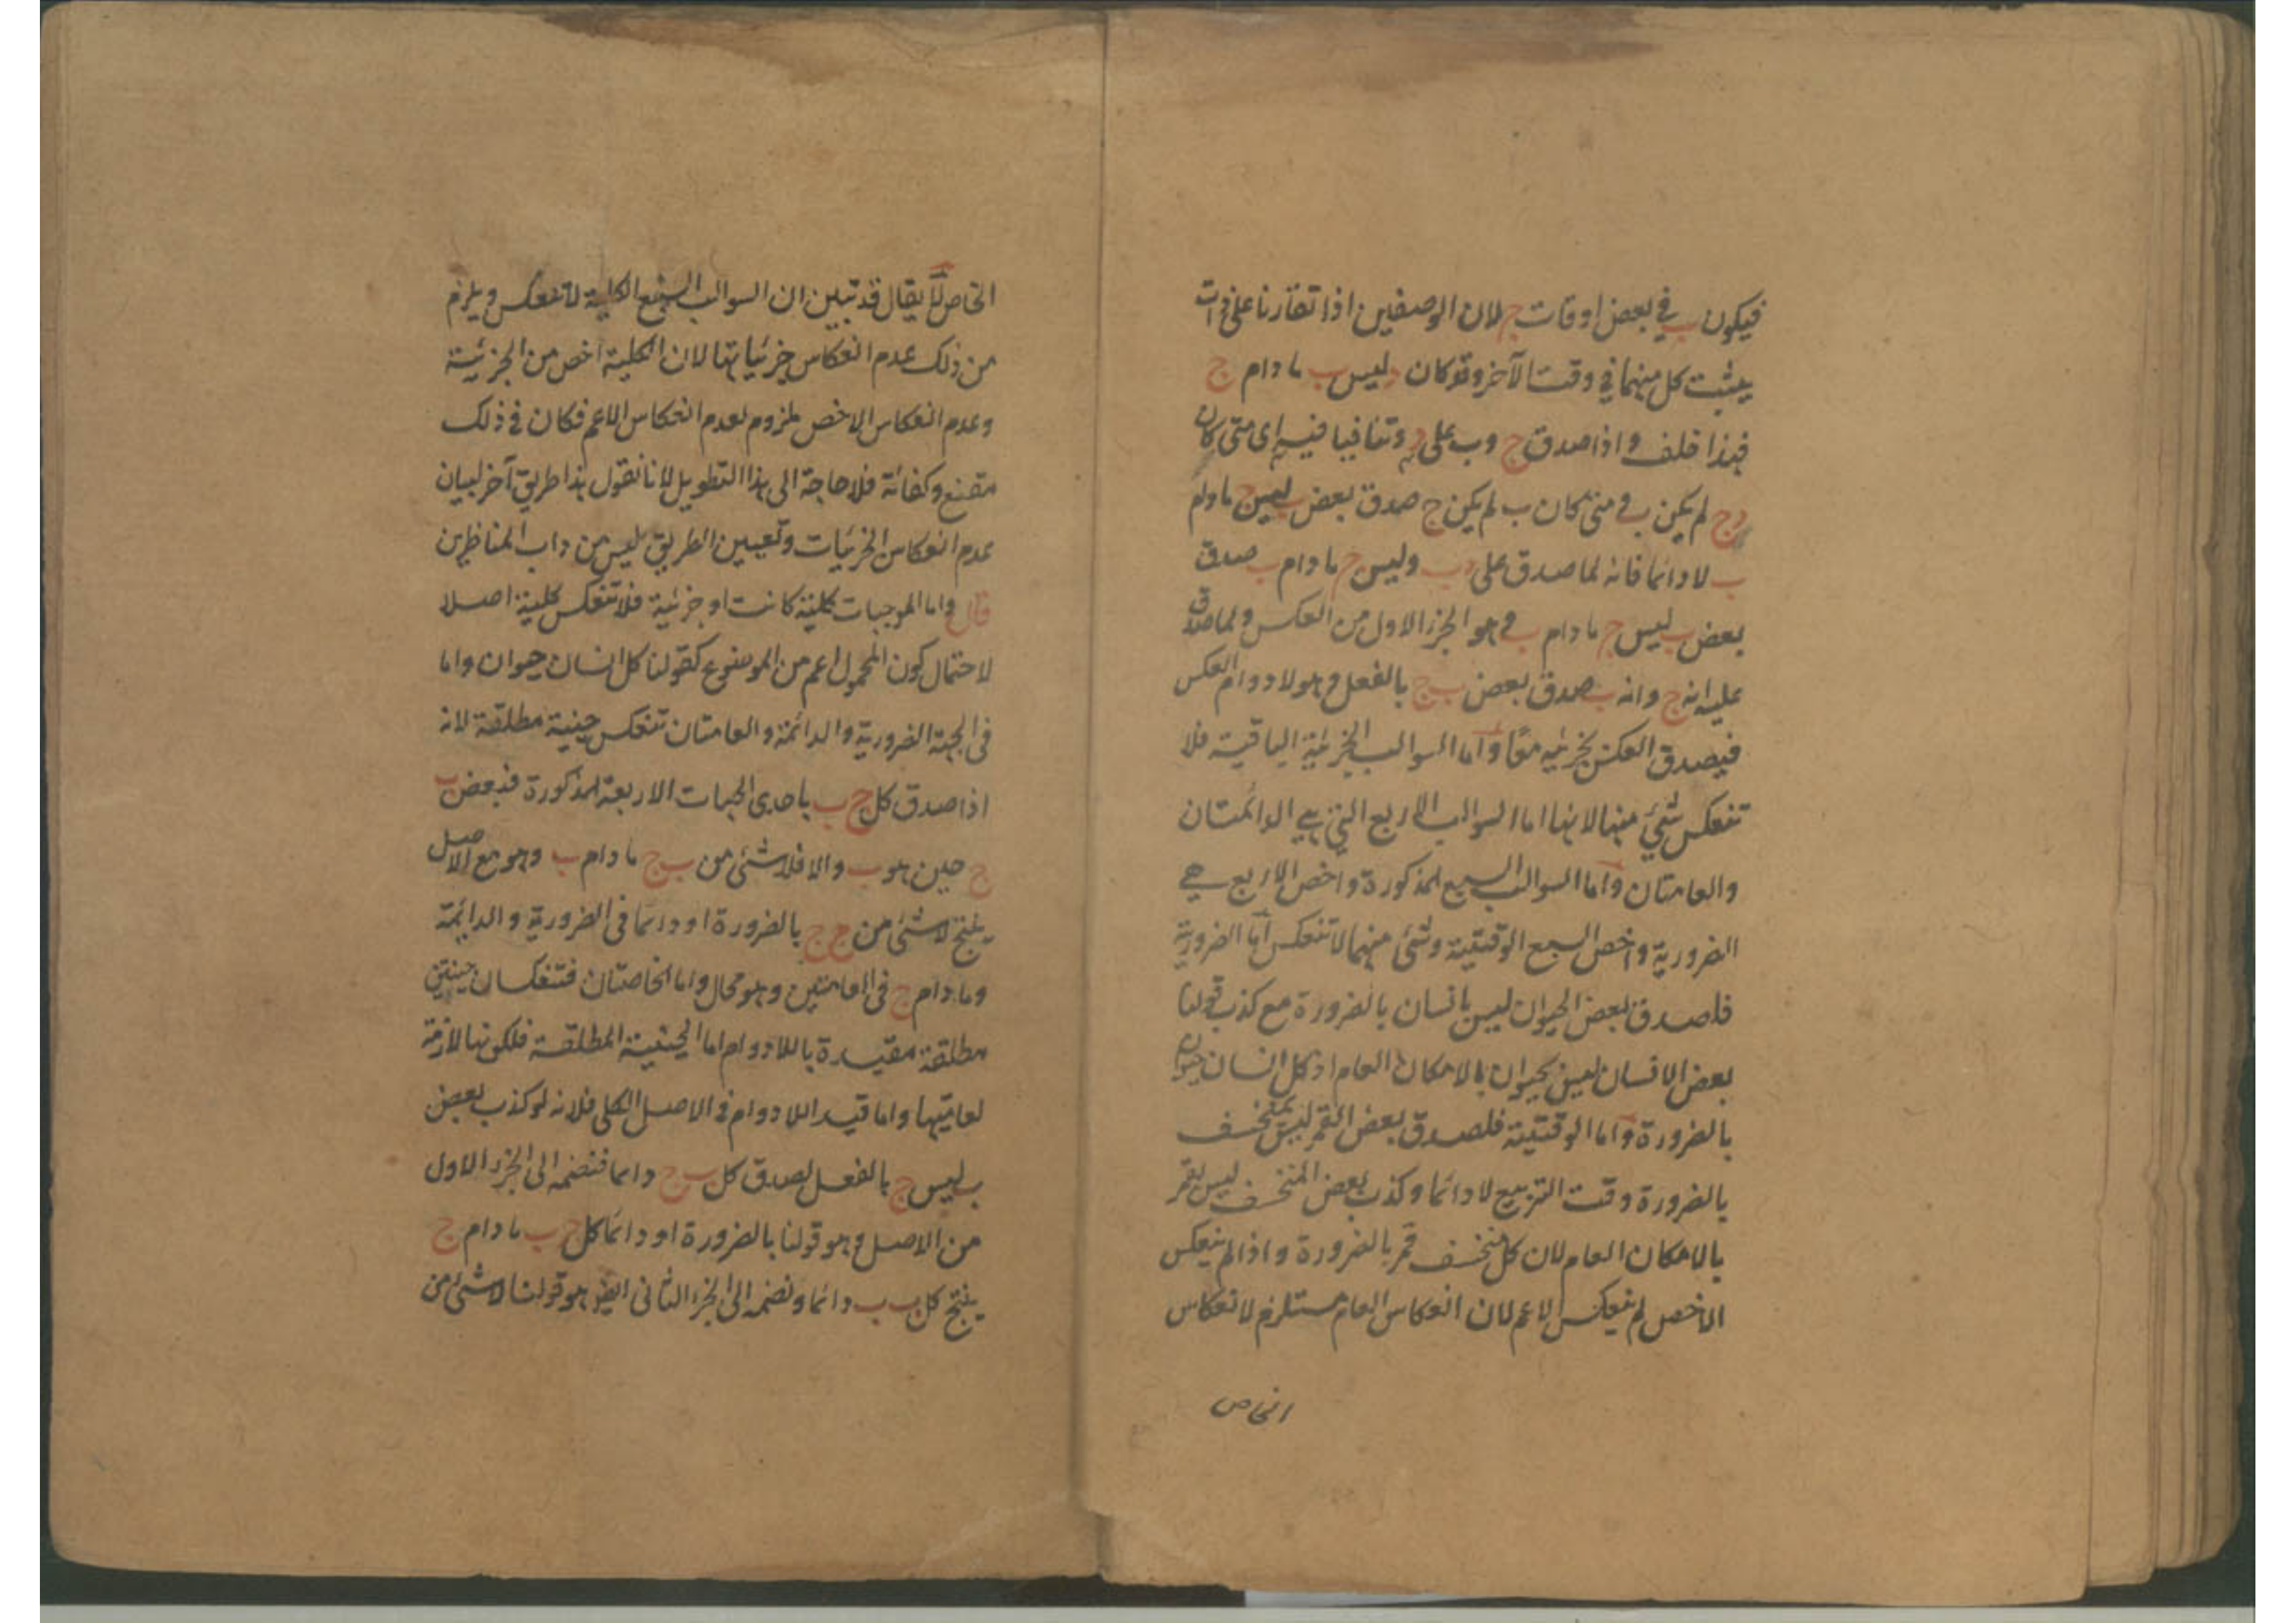 فيكون ب في بعض اوقات ج لان الوصفين اذا تقارنا على ذات
يثبت كل منهما في وقت الآخر وقد كان د ليس ب ما دام ج
فهذا خلف واذا صدق ج و ب على د وتنافيا فيه اى متى كان
د ج لم يكن ب فمتى كان ب لم يكن ج صدق بعض ب ليس ج ما دام
ب لا دائما فانه لما صدق على د ب وليس ج ما دام ب صدق
بعض ب ليس ج ما دام ب وهو الجزء الاول من العكس ولما صدق
عليه انه ج وانه ب صدق بعض ب ج بالفعل وهو لا دوام العكس
فيصدق العكس بجزئيه معًا واما السوالب الجزئية الباقية فلا
تنعكس شئ منها لانها اما السوالب الاربع التي هي الدائمتان
والعامتان واما السوالب السبع المذكورة واخص الاربع هي
الضرورية واخص السبع الوقتية وشئ منهما لا تنعكس اما الضرورية
فلصدق بعض الحيوان ليس بانسان بالضرورة مع كذب قولنا
بعض الانسان ليس بحيوان بالامكان العام اذ كل انسان حيوان
بالضرورة واما الوقتية فلصدق بعض القمر ليس بمنخسف
بالضرورة وقت التربيع لا دائما وكذب بعض المنخسف ليس بقمر
بالامكان العام لان كل منخسف قمر بالضرورة واذا لم ينعكس
الاخص لم ينعكس الاعم لان انعكاس العام مستلزم لانعكاس
الخاص
الخاص لا يقال قد تبين ان السوالب السبع الكلية لا تنعكس ويلزم
من ذلك عدم انعكاس جزئياتها لان الكلية اخص من الجزئية
وعدم انعكاس الاخص ملزوم لعدم انعكاس الاعم فكان في ذلك
مقنع وكفائة فلا حاجة الى هذا التطويل لانا نقول هذا طريق آخر لبيان
عدم انعكاس الجزئيات وتعيين الطريق ليس من داب المناظرين
قال واما الموجبات كلية كانت او جزئية فلا تنعكس كلية اصلا
لاحتمال كون المحمول اعم من الموضوع كقولنا كل انسان حيوان واما
فى الجهة الضرورية والدائمة والعامتان تنعكس حينية مطلقة لانه
اذا صدق كل ج ب باحدى الجهات الاربعة المذكورة فبعض ب
ج حين هو ب والا فلا شئ من ب ج ما دام ب وهو مع الاصل
ينتج لا شئ من ج ج بالضرورة او دائما فى الضرورية والدائمة
وما دام ج فى العامتين وهو محال واما الخاصتان فتنعكسان حينيتين
مطلقة مقيدة باللا دوام اما الحينية المطلقة فلكونها لازمة
لعامتيها واما قيد اللا دوام في الاصل الكلى فلانه لو كذب بعض
ب ليس ج بالفعل لصدق كل ب ج دائما فنضمه الى الجزء الاول
من الاصل وهو قولنا بالضرورة او دائما كل ج ب ما دام ج
ينتج كل ب ب دائما ونضمه الى الجزء الثانى ايضو هو قولنا لا شئ من